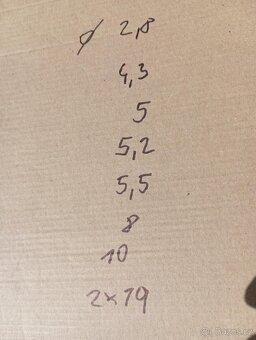 ø 2,8
4,3
5
5,2
5,5
8
10
2x19